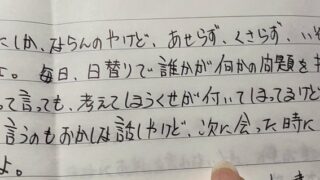 しか、ならんのやけど、あせらず、くさらず、い
。毎日、日替りで誰かが何かの問題を
って言っても、考えてしまうくせが付いてしまってるけど
言うのもおかしな話しやけど、次に会った時に
よ。